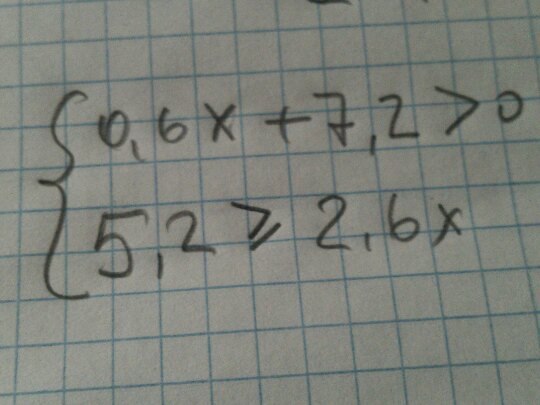 { 0,6x + 7,2 > 0
5,2 ⩾ 2,6x